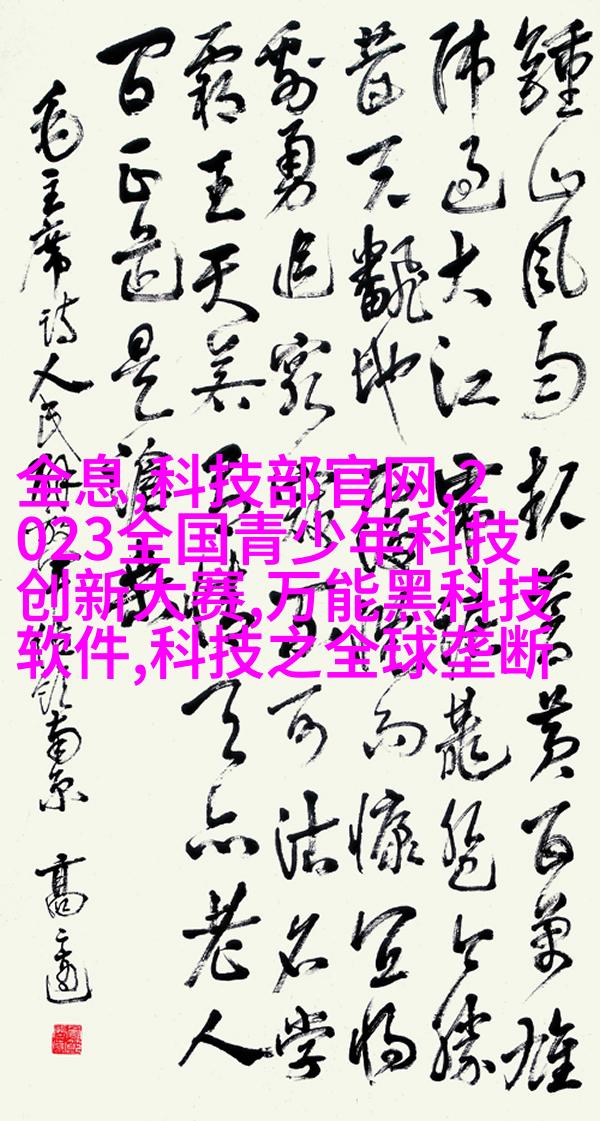 鍾山風雨起蒼黄百萬雄
師過大江虎踞龍盤今勝
昔天翻地覆慨而慷宜將
剩勇追窮寇不可沽名學
霸王天若有情天亦老人
間正道是滄桑
毛主席詩人民解放軍佔領南京 高
全息,科技部官网,2
023全国青少年科技
创新大赛,万能黑科技
软件,科技之全球垄断